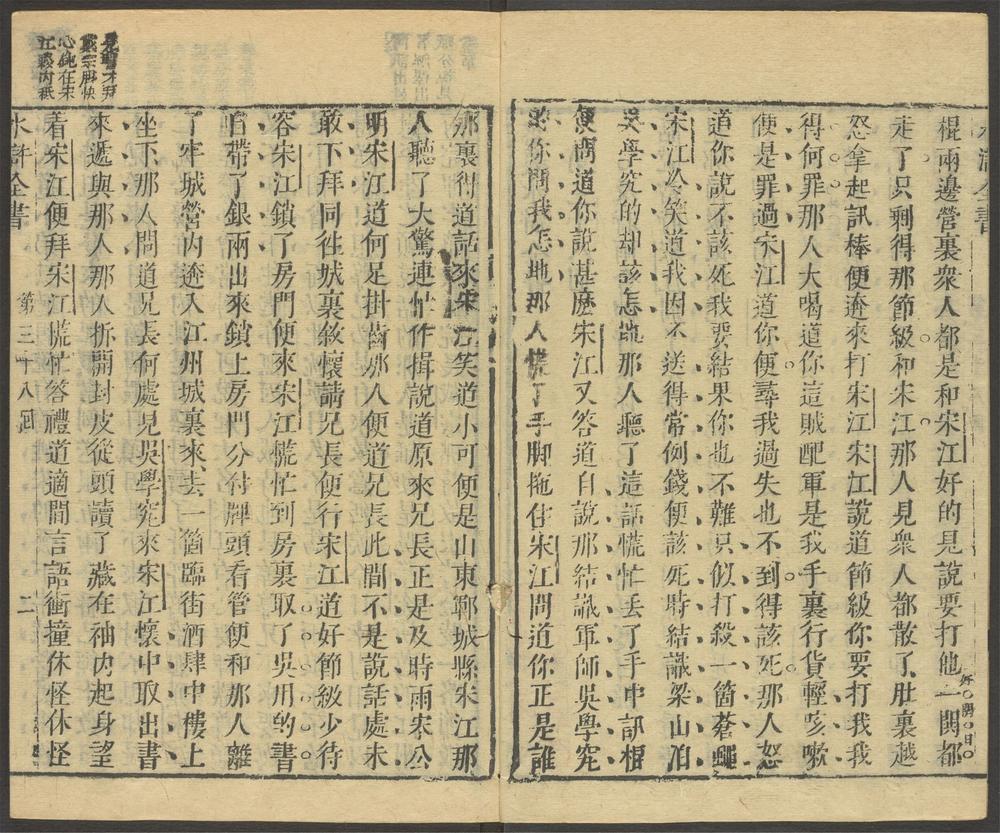 棍兩邊營裏衆人都是和宋江好的見說要打他一閧都
走了只剩得那節級和宋江那人見衆人都散了肚裏越
怒拿起訊棒便逩來打宋江宋江說道節級你要打我我
得何罪那人大喝道你這賊配軍是我手裏行貨輕咳嗽
便是罪過宋江道你便尋我過失也不到得該死那人怒
道你說不該死我要結果你也不難只似打殺一箇蒼蠅
宋江冷笑道我因不送得常例錢便該死時結識梁山泊
吳學究的却該怎地那人聽了這話慌忙丟了手中訊棍
便問道你說甚麽宋江又答道自說那結識軍師吳學究
的你問我怎地那人慌了手脚拖住宋江問道你正是誰
那裏得道話來宋江笑道小可便是山東鄆城縣宋江那
人聽了大驚連忙作揖說道原來兄長正是及時雨宋公
明宋江道何足掛齒那人便道兄長此間不是說話處未
敢下拜同徃城裏敘懷請兄長便行宋江道好節級少待
容宋江鎖了房門便來宋江慌忙到房裏取了吳用的書
自帶了銀兩出來鎖上房門分付牌頭看管便和那人離
了牢城營內逩入江州城裏來去一箇臨街酒肆中樓上
坐下那人問道兄長何處見吳學究來宋江懷中取出書
來遞與那人那人拆開封皮從頭讀了藏在袖內起身望
着宋江便拜宋江慌忙答禮道適間言語衝撞休怪休怪
水滸全書
第三十八囘
二